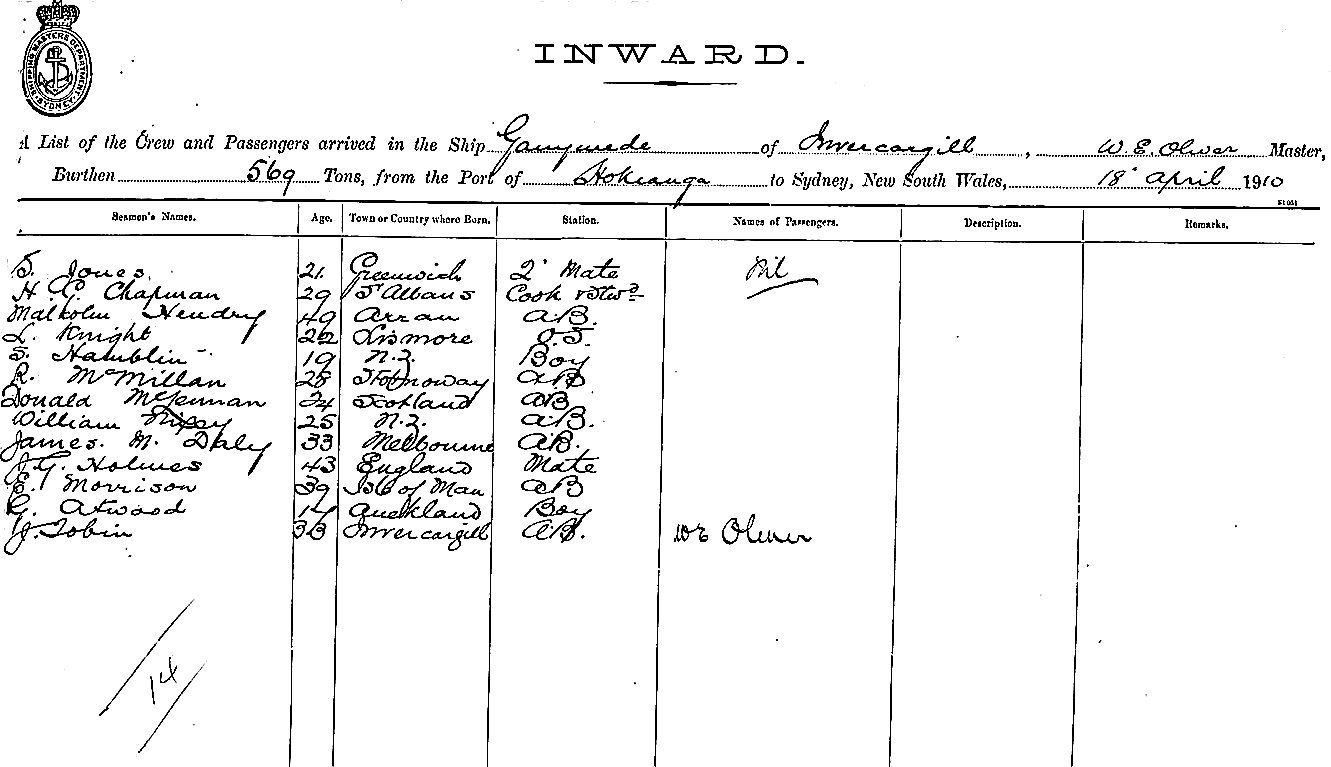 SHIPPING MASTERS DEPARTMENT SYDNEY
INWARD.
A List of the Crew and Passengers arrived in the Ship Ganymede of Invercargill, W. E. Oliver Master,
Burthen 569 Tons, from the Port of Hokianga to Sydney, New South Wales, 18 April 1910
Seamen's Names. Age. Town or Country where Born. Station. Names of Passengers. Description. Remarks.
S. Jones 21 Greenwich 2 Mate Nil
H. Chapman 29 St Albans Cook & Stwd
Malcolm Hendry 49 Arran A.B.
L. Knight 22 Lismore O.S.
S. Hamblin 19 N.Z. Boy
R. McMillan 28 Stornoway AB
Donald 24 Scotland AB
William 25 N.Z. A.B.
James. M. Daly 33 Melbourne A.B.
J. G. Holmes 43 England Mate
E. Morrison 39 Isle of Man AB
G. Atwood Auckland Boy
J. Tobin 33 Invercargill A.B. W E Oliver
14